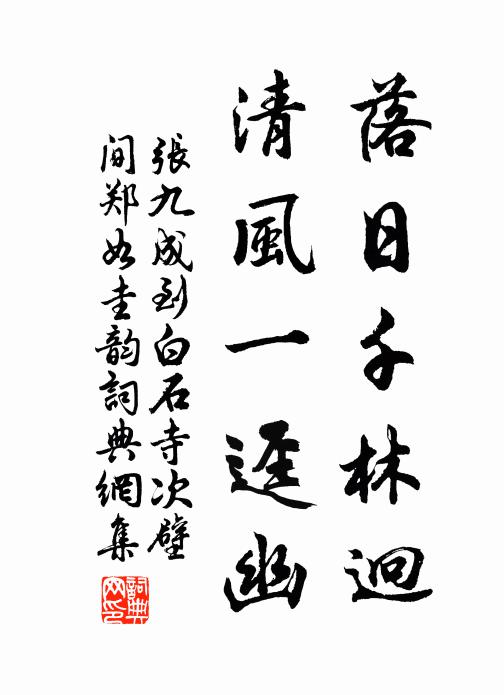 落日千林迥
清風一逕幽
張九成到白石寺次壁
间郑如圭韵詞典網集
詞典
网印